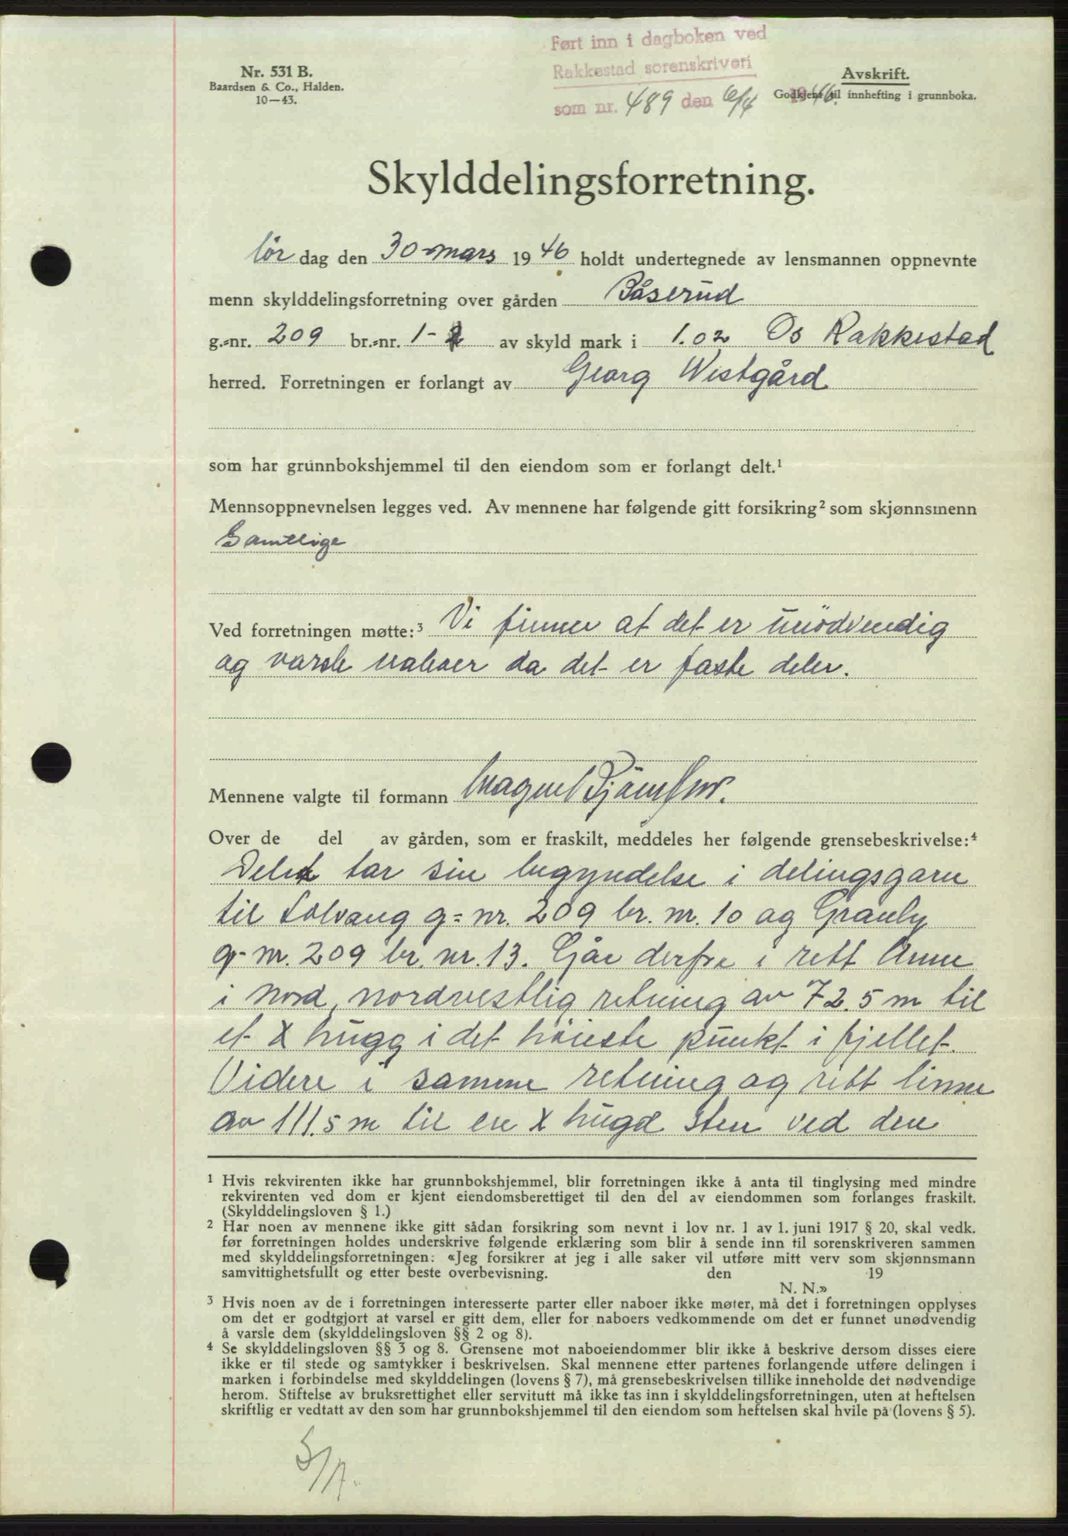 Ført inn i dagboken ved
Rakkestad sorenskriveri
som nr. 489 den 6/4 1946.
Nr. 531 B.
Baardsen & Co., Halden.
10—43.
Avskrift.
Godkjent til innhefting i grunnboka.
Skylddelingsforretning.
lør dag den 30 mars 1946 holdt undertegnede av lensmannen oppnevnte
menn skylddelingsforretning over gården Båserud
g.-nr. 209 br.-nr. 1- av skyld mark i 1.02 Os Rakkestad
herred. Forretningen er forlangt av Georg Westgård
som har grunnbokshjemmel til den eiendom som er forlangt delt.¹
Mennsoppnevnelsen legges ved. Av mennene har følgende gitt forsikring² som skjønnsmenn
Samtlige
Ved forretningen møtte:³ Vi finner at det er unödvendig
og varsle naboer da det er faste deler.
Mennene valgte til formann
Over de del av gården, som er fraskilt, meddeles her følgende grensebeskrivelse:⁴
Delet tar sin begyndelse i delingsgarn
til Solvang g=nr. 209 br. nr. 10 og Granly
g-nr. 209 br. nr. 13. Går derfra i rett linne
i nord, nordvestlig retning av 72.5 m til
et X hugg i det höieste punkt i fjellet.
Videre i samme retning og rett linne
av 111.5 m til en X hugd sten ved den
¹ Hvis rekvirenten ikke har grunnbokshjemmel, blir forretningen ikke å anta til tinglysing med mindre
rekvirenten ved dom er kjent eiendomsberettiget til den del av eiendommen som forlanges fraskilt.
(Skylddelingsloven § 1.)
² Har noen av mennene ikke gitt sådan forsikring som nevnt i lov nr. 1 av 1. juni 1917 § 20, skal vedk.
før forretningen holdes underskrive følgende erklæring som blir å sende inn til sorenskriveren sammen
med skylddelingsforretningen: «Jeg forsikrer at jeg i alle saker vil utføre mitt verv som skjønnsmann
samvittighetsfullt og etter beste overbevisning. den 19
N. N.»
³ Hvis noen av de i forretningen interesserte parter eller naboer ikke møter, må det i forretningen opplyses
om det er godtgjort at varsel er gitt dem, eller for naboers vedkommende om det er funnet unødvendig
å varsle dem (skylddelingsloven §§ 2 og 8).
⁴ Se skylddelingsloven §§ 3 og 8. Grensene mot naboeiendommer blir ikke å beskrive dersom disses eiere
ikke er til stede og samtykker i beskrivelsen. Skal mennene etter partenes forlangende utføre delingen i
marken i forbindelse med skylddelingen (lovens § 7), må grensebeskrivelsen tillike inneholde det nødvendige
herom. Stiftelse av bruksrettighet eller servitutt må ikke tas inn i skylddelingsforretningen, uten at heftelsen
skriftlig er vedtatt av den som har grunnbokshjemmel til den eiendom som heftelsen skal hvile på (lovens § 5).